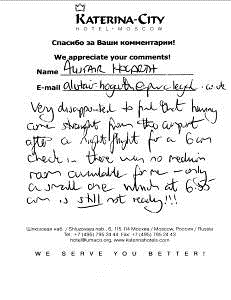 KATERINA-CITY
HOTEL • MOSCOW
Спасибо за Ваши комментарии!
We appreciate your comments!
Name ALISTAIR
E-mail
Very disappointed to find that having
come straight from the airport
after a night flight for a 6am
check in there was no medium
room available for me - only
a small one which at 6:55
am is still not ready!!!
Шлюзовая наб. / Shluzovaya nab., 6, 115 114 Москва / Moscow, Россия / Russia
Tel.: +7 (495) 795 24 44 Fax: +7 (495) 795 24 43
hotel@umaco.ru, www.katerinahotels.com
WE SERVE YOU BETTER!